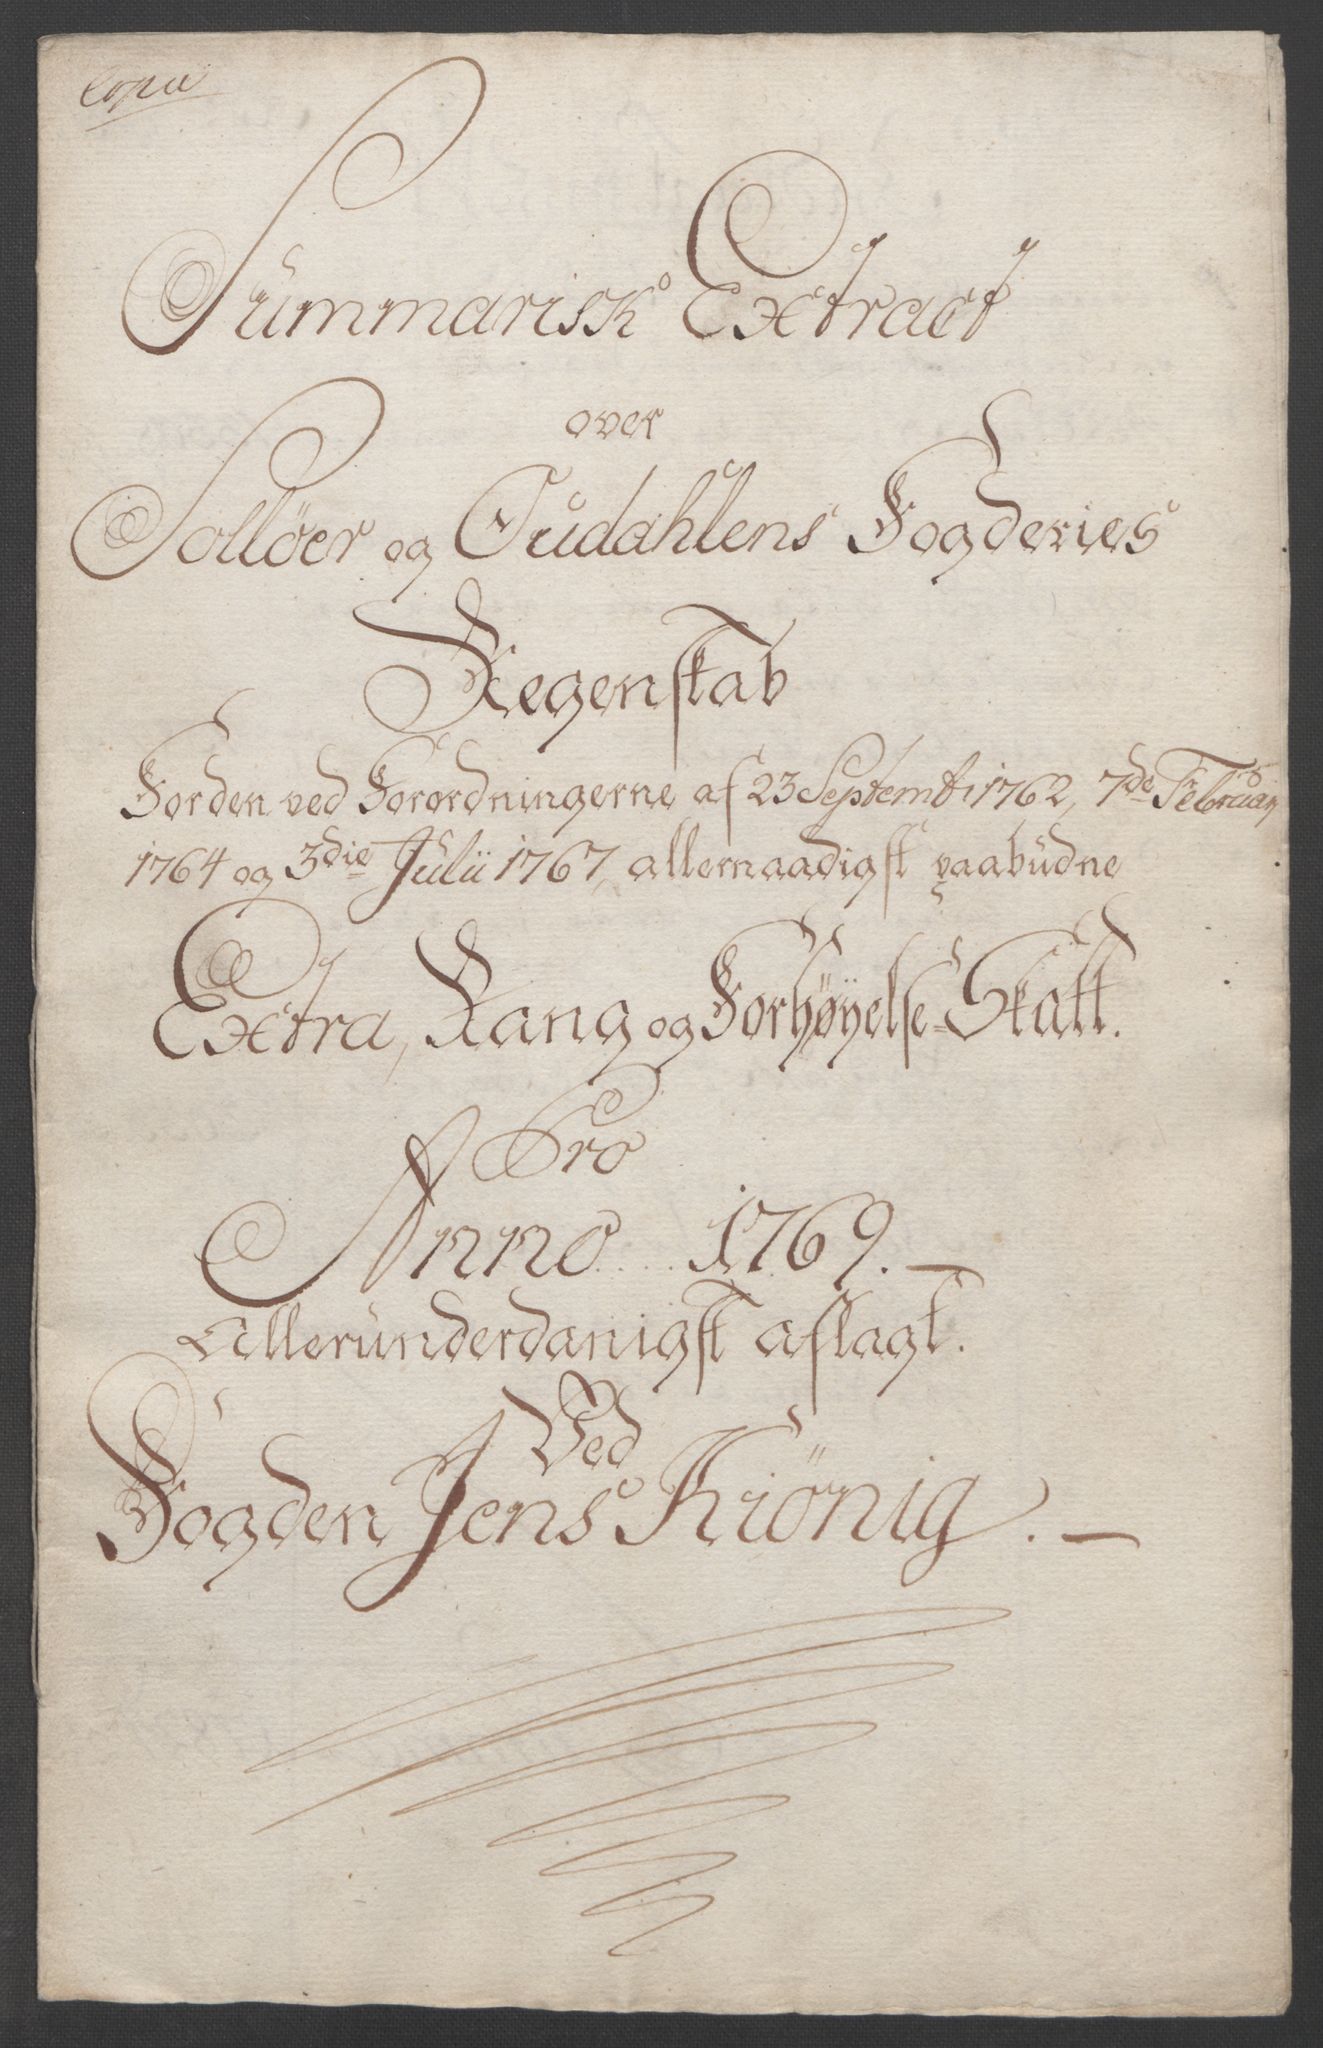 Copia
Summarisk Extract
over
Solløer og Oudahlens Fogderies
Regenskab
Forden ved Forordningerne af 23 Septemb: 1762, 7de Februar
1764 og 3die Julii 1767, allernaadigst paabudne
Extra, Rang og Forhøyelse-Skatt.
Pro
Anno 1769.
Allerunderdanigst aflagt.
Ved
Fogden Jens Kiönig.